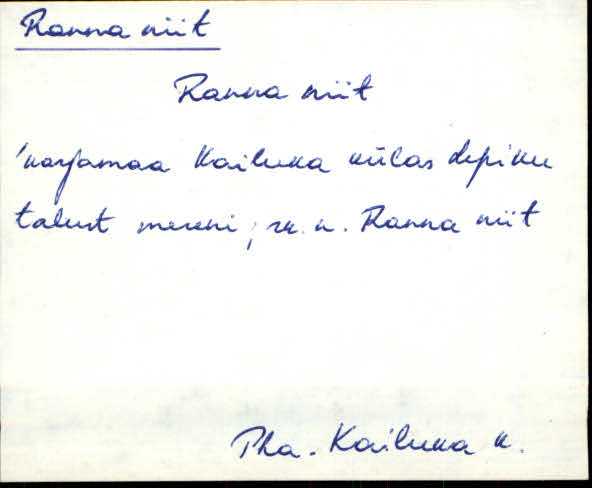 Ranna niit
Ranna niit
'karjamaa Kailuka külas Lepiku
talust mereni; rk. n. Ranna niit
Pha. Kailuka k.